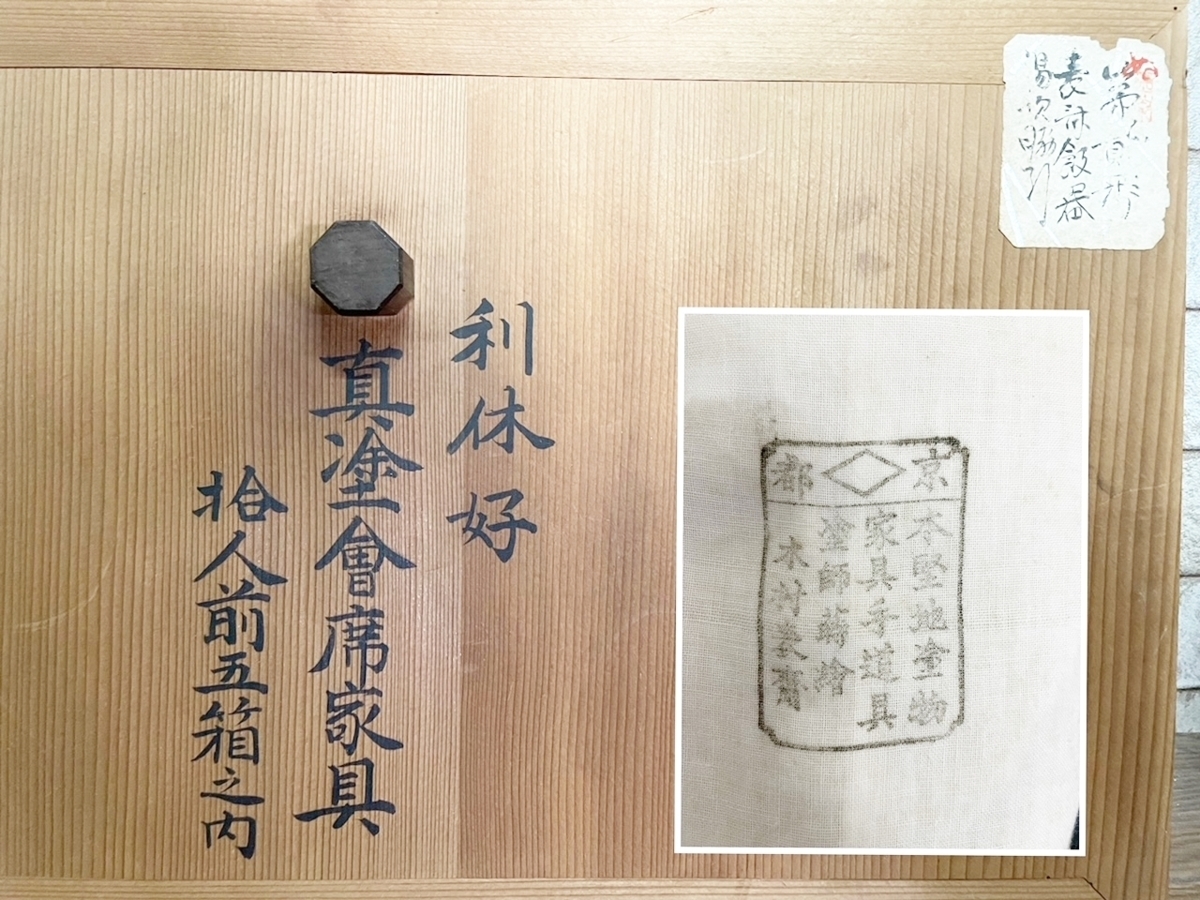 利休好
真塗會席家具
拾人前五箱之内
表
飯器
湯次脇引
京都
本堅地塗物
家具手道具
塗師蒔繪
木村表齋